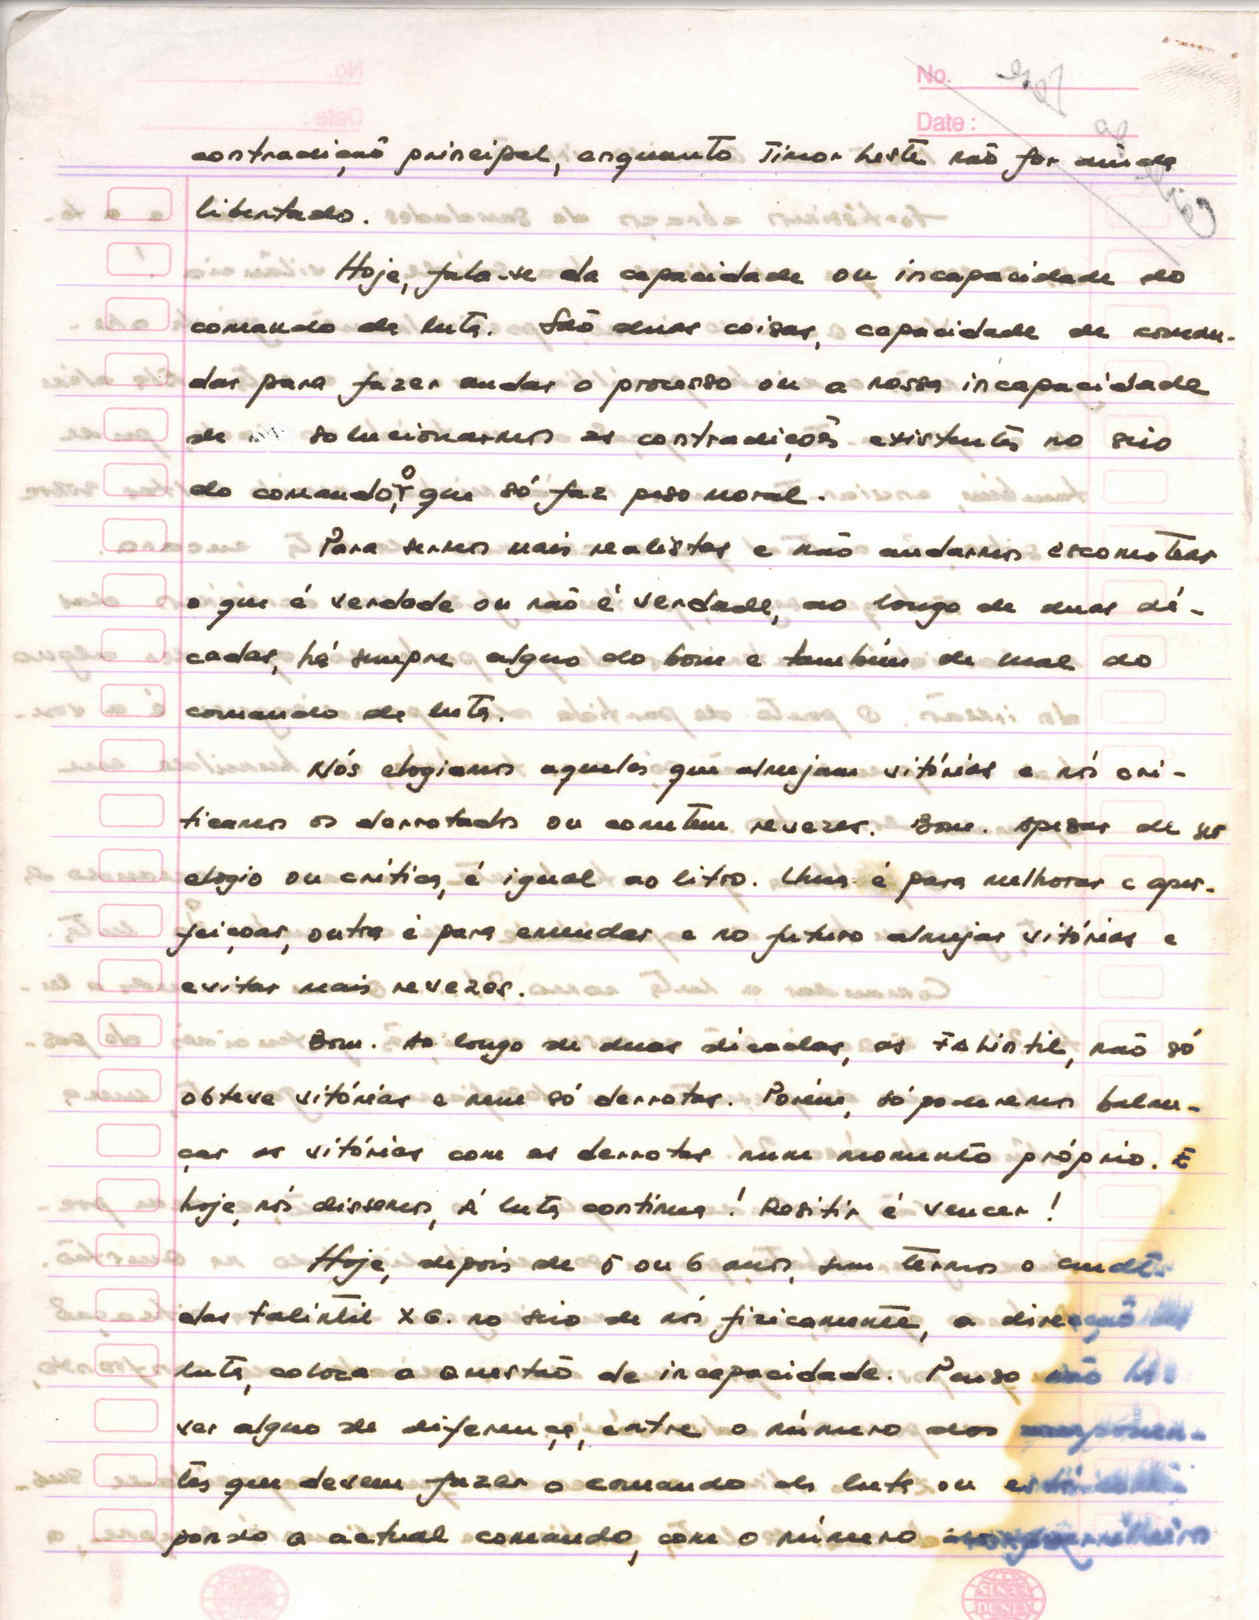 No.
Date :
contradiçaõ principal, enquanto Timor Leste não for ainda
libertado.
Hoje, fala-se da capacidade ou incapacidade do
comando da luta. Saõ duas coisas, capacidade de coman-
dar para fazer andar o processo ou a nossa incapacidade
de solucionarmos as contradiçoẽs existentes no seio
do comando, o que só faz peso moral.
Para sermos mais realistas e não andarmos escamotear
o que é verdade ou não é verdade, ao longo de duas dé-
cadas, há sempre algo do bom e também de mal do
comando da luta.
Nós elogiamos aqueles que almejam vitórias e nós cri-
ticamos os derrotados ou cometem revezes. Bom. Apesar de ser
elogio ou crítica, é igual ao litro. Uma é para melhorar e aper-
feiçoar, outra é para emendar e no futuro almejar vitórias e
evitar mais revezes.
Bom. Ao longo de duas décadas, as Falintil, não só
obteve vitórias e nem só derrotas. Porém, só poderemos balan-
çar as vitórias com as derrotas num momento próprio. E
hoje, nós dissemos, A luta continua! Resitir é vencer!
Hoje, depois de 5 ou 6 anos, sem termos o cmdte
das Falintil XG. no seio de nós fizicamente, a direcçaõ
luta, coloca a questão de incapacidade. Penso não
ver alguo de diferença, entre o número dos componen-
tes que devem fazer o comando da luta ou
pondo o actual comando, com o número